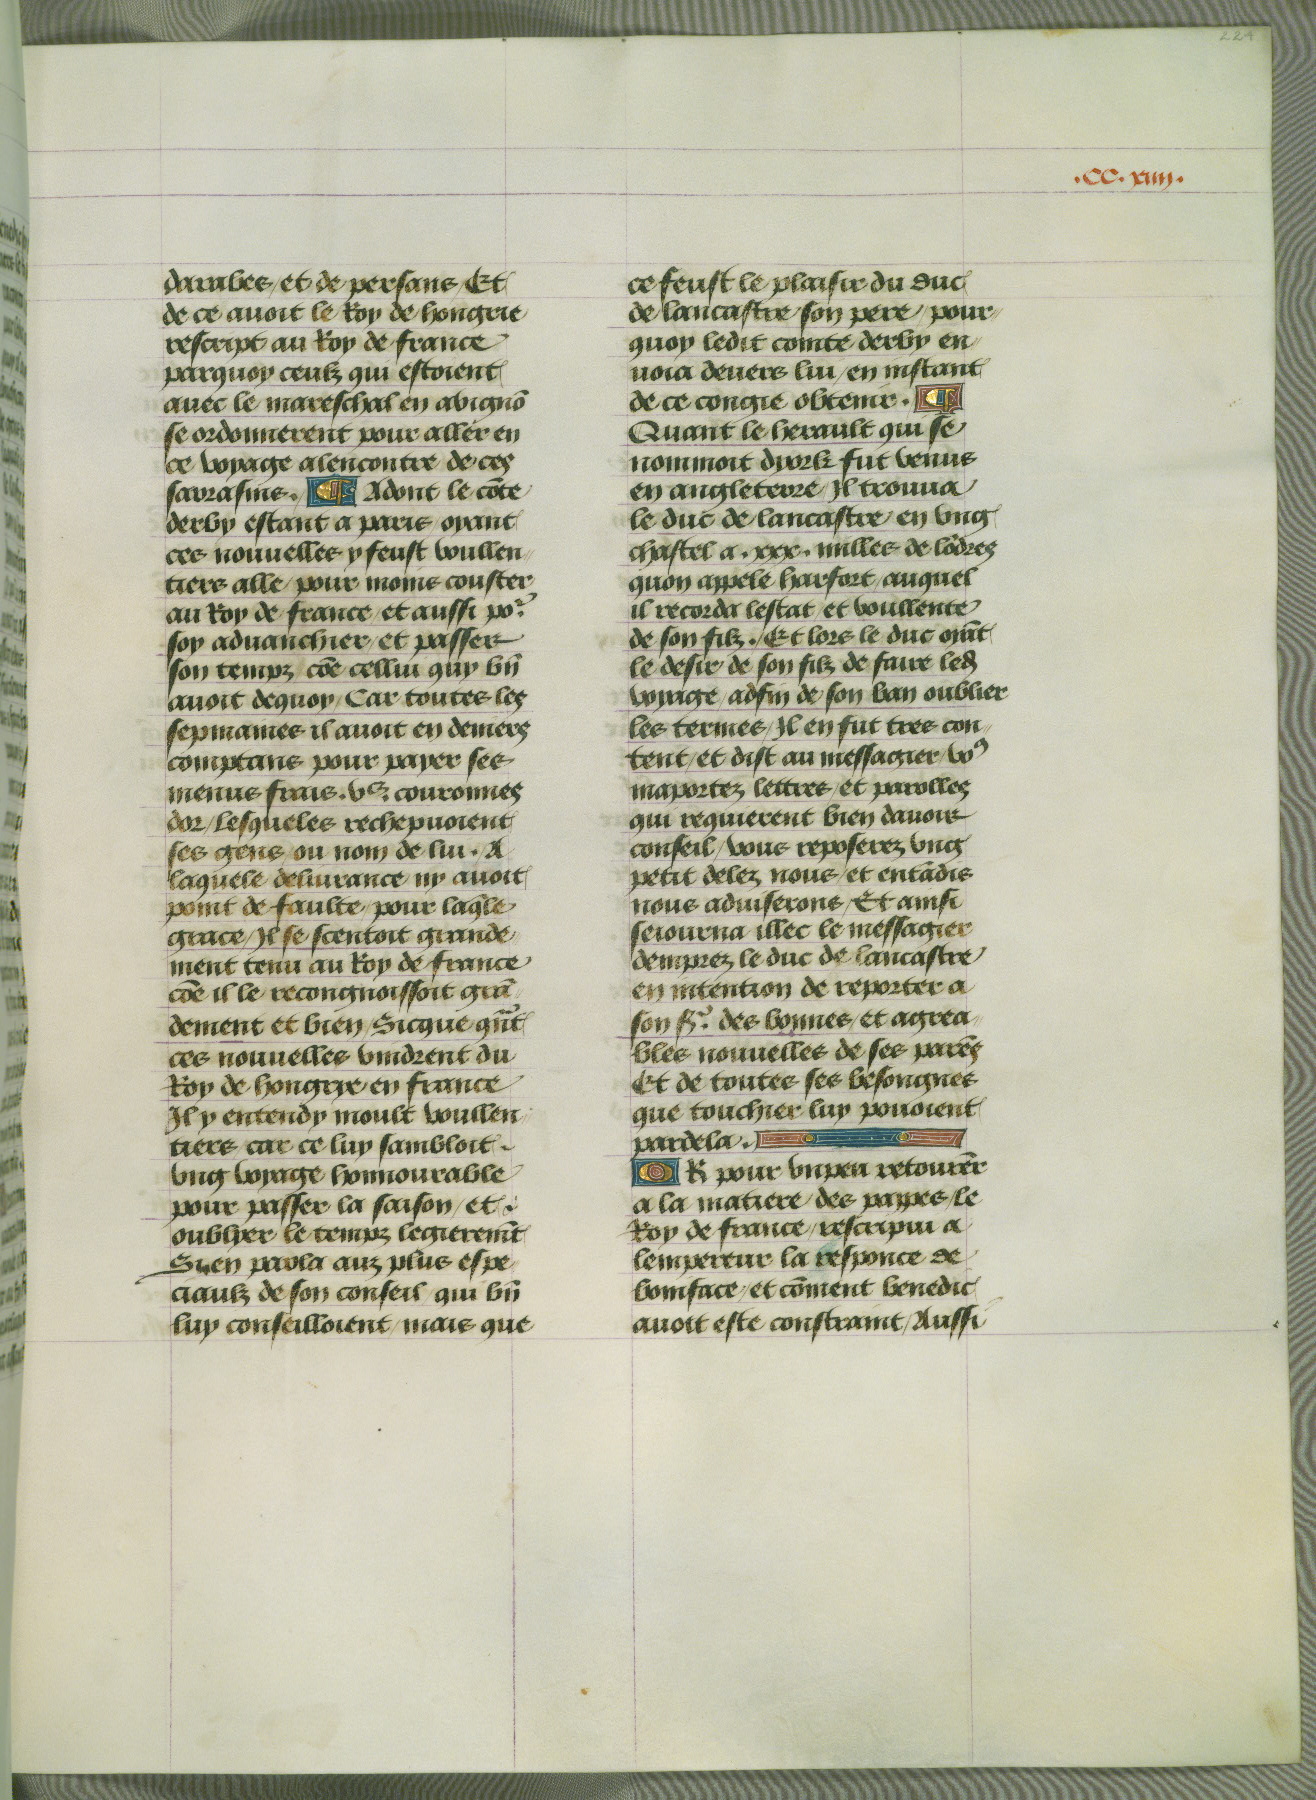 224
·CC·xiiii·
darabes / et de persans / Et
de ce auoit le Roy de hongrie
rescript au Roy de france
parquoy ceulz qui estoient
auec le mareschal en abignõ
se ordonnerent pour aller en
ce voyage alencontre de ces
sarrasins. ¶ Adont le cõte
derby estant a paris oyant
ces nouuelles y feust voullen-
tiers alle / pour moins couster
au Roy de france / et aussi po^r
soy aduanchier / et passer
son tempz cõe cellui quy bñ
auoit dequoy / Car toutes les
sepmaines il auoit en deniers
comptans pour payer ses
menus frais . v^c. couronnes
dor / lesqueles rechepuoient
ses gens ou nom de lui . A
laquele deliurance ny auoit
point de faulte / pour laq̃le
grace / Il se scentoit grande-
ment tenu au Roy de france
cõe il le recongnoissoit grã-
dement et bien / Sicque q̃nt
ces nouuelles vindrent du
Roy de hongrye en france
Il y entendy moult voullen-
tiers car ce luy sambloit .
vng voyage honnourable
pour passer la saison / et .
oublyer le tempz legieremt̃
Si en parla auz plus espe-
ciaulz de son conseil qui bñ
luy conseilloient / mais que
ce feust le plaisir du duc
de lancastre / son pere / pour-
quoy ledit comte derby en-
uoia deuers lui / en instant
de ce congie obtenir . ¶
Quant le herault qui se
nommoit dyorlz fut venus
en angleterre / Il trouua
le duc de lancastre / en vng
chastel a . xxx . milles de lõdres
quon appele harfort / auquel
il recorda lestat et voullente
de son filz . / Et lors le duc oiãt
le desir de son filz de faire led̃
voyage / adfin de son ban oublier
les termes / Il en fut tres con-
tent / et dist au messagier / vo9
maportez lettres / et parolles
qui requierent bien dauoir
conseil / vous reposerez vng
petit delez nous / et entãdis
nous aduiserons / Et ainsi
seiourna illec le messagier
demprez le duc de lancastre
en intention de reporter a
son s^r. des bonnes / et agrea-
bles nouuelles de ses parẽs
Et de toutes ses besongnes
que touchier luy pouoient
pardela .
OR pour vnpeu retourñer
a la matiere / des papes / le
Roy de france / rescripui a
lempereur la responce de
boniface / et cõment benedic
auoit este constraint / Aussi